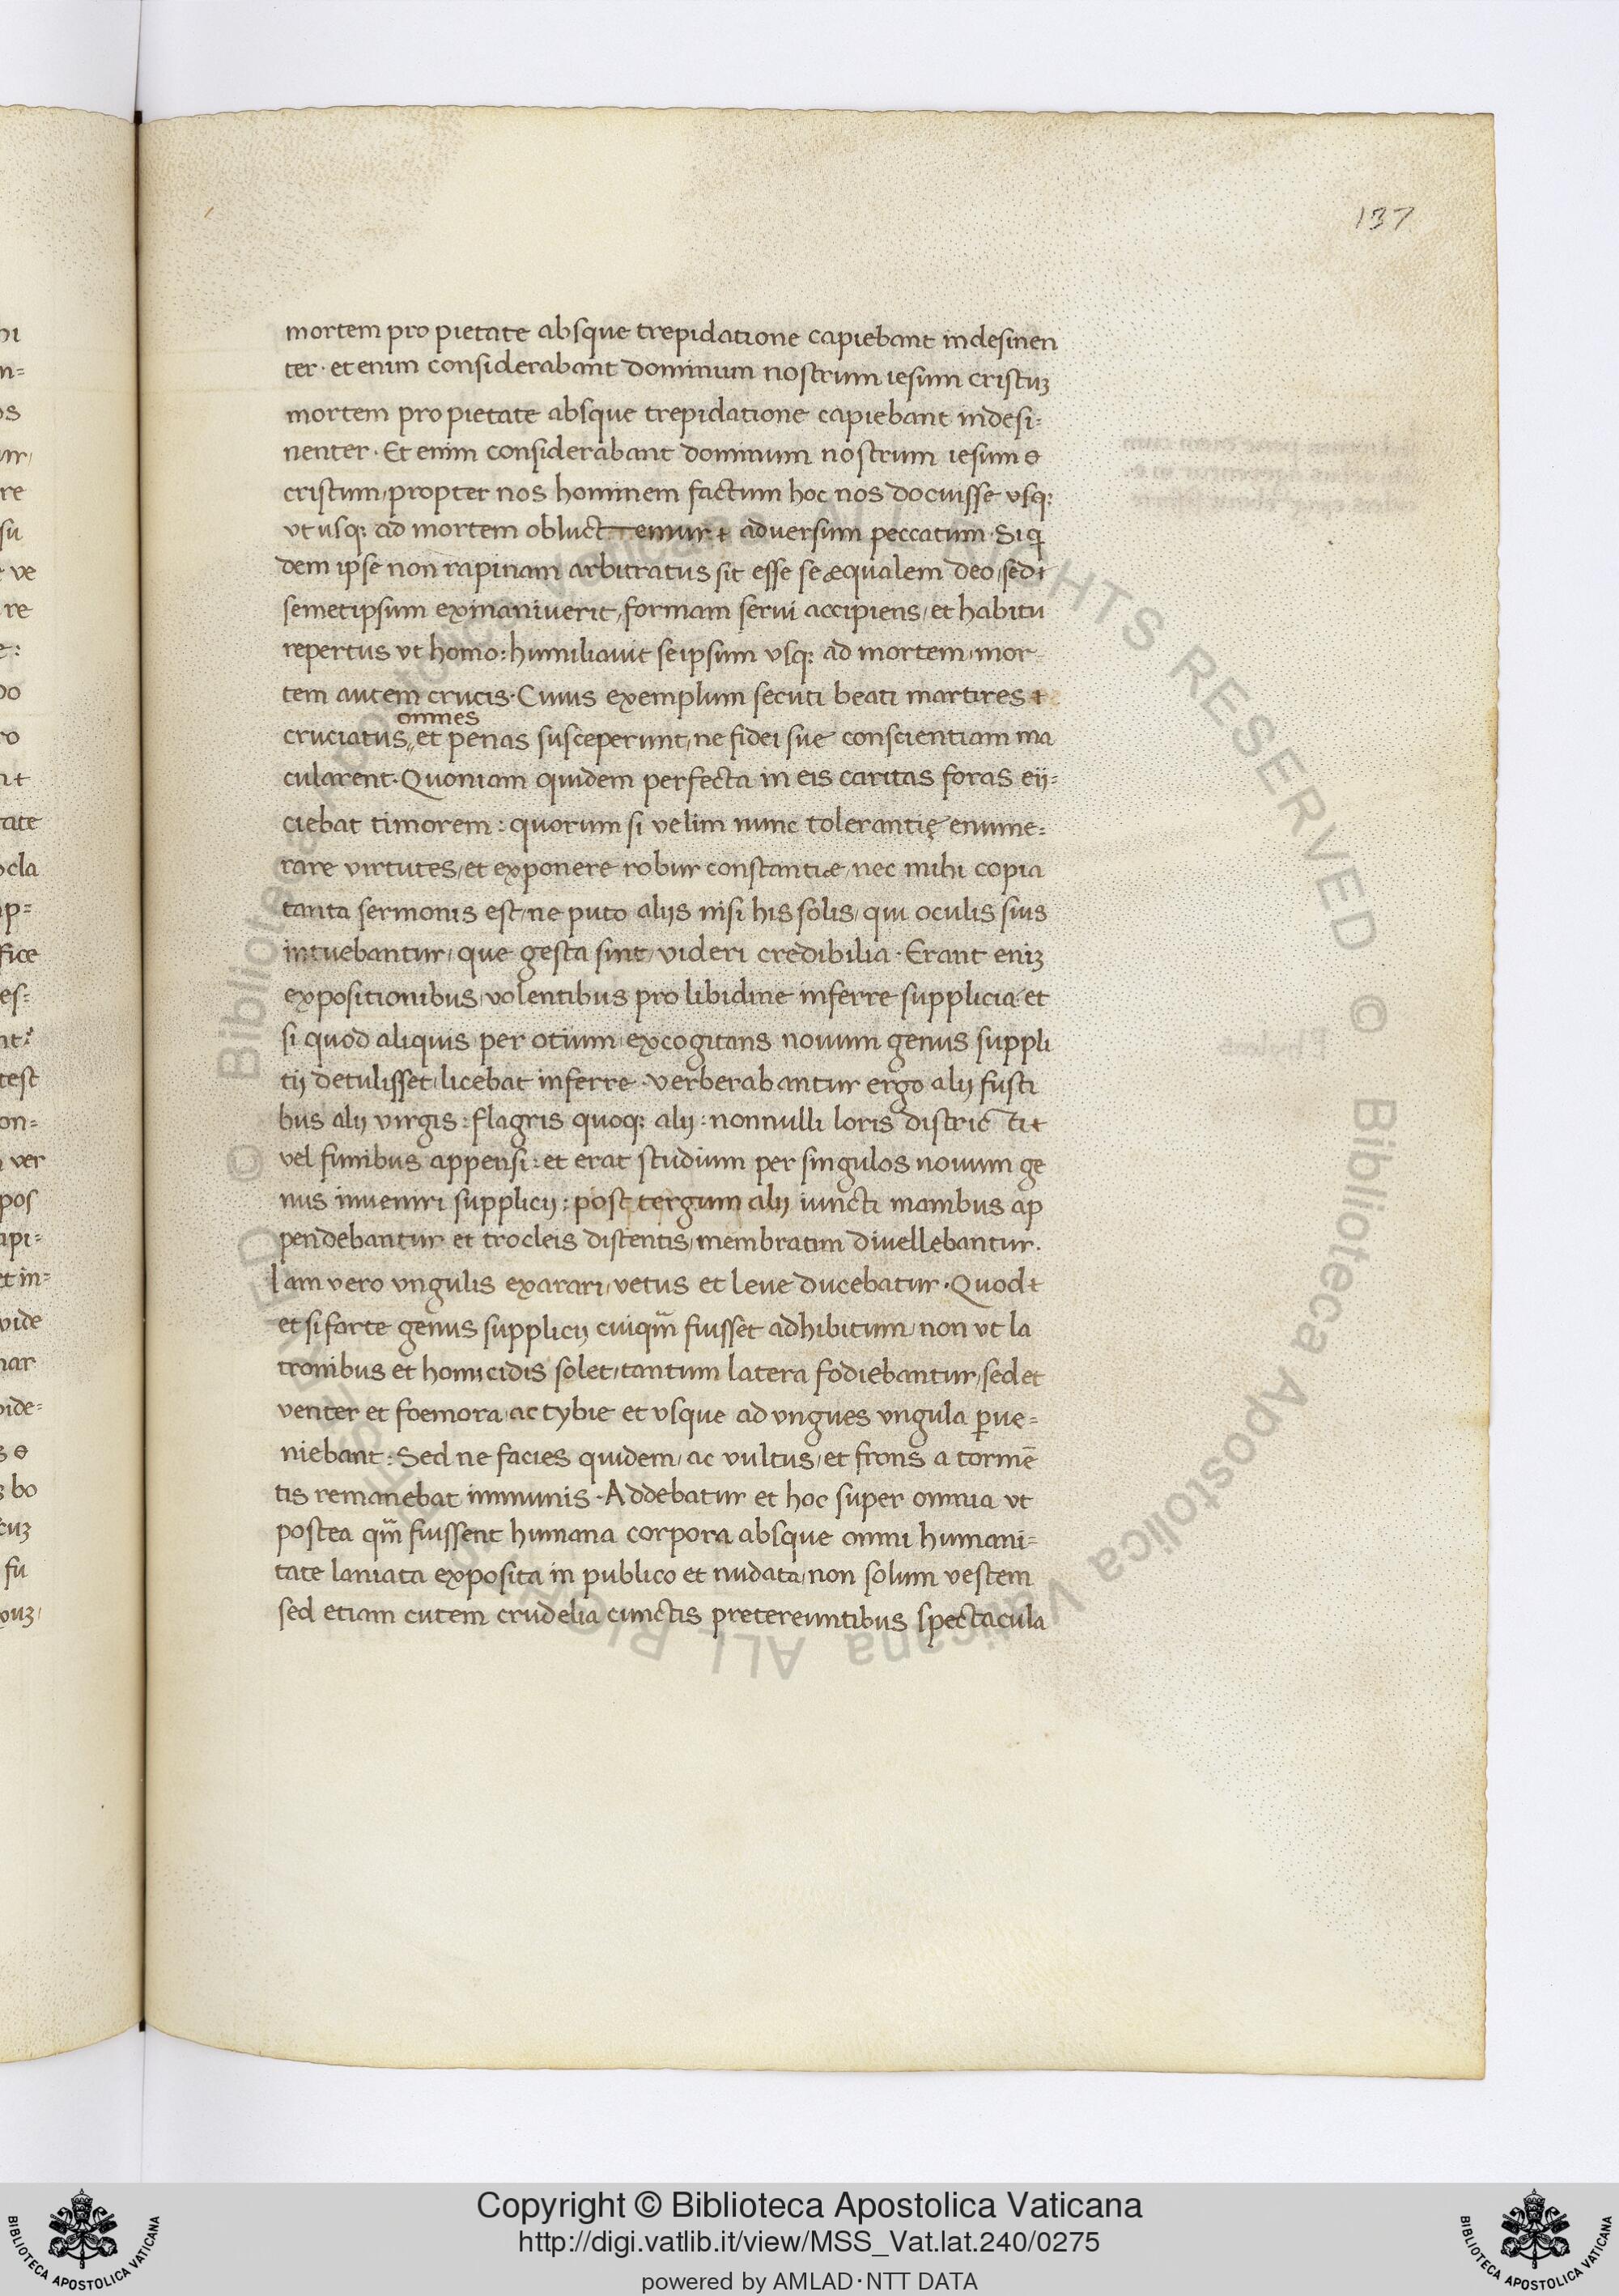 137
mortem pro pietate absque trepidatione capiebant indesinen
ter · et enim considerabant dominum nostrum iesum cristuꝫ
mortem pro pietate absque trepidatione capiebant indesi=
nenter · Et enim considerabant dominum nostrum iesum
cristum, propter nos hominem factum hoc nos docuisse vsqꝫ
vt usqꝫ ad mortem obluctemur adversum peccatum · Si q
dem ipse non rapinam arbitratus sit esse se æqualem deo, sed
semetipsum exinaniverit, formam servi accipiens, et habitu
repertus vt homo : humiliavit seipsum vsqꝫ ad mortem, mor
tem autem crucis · Cuius exemplum secuti beati martires
omnes
cruciatus,, et penas susceperunt, ne fidei sue conscientiam ma
cularent · Quoniam quidem perfecta in eis caritas foras eij=
ciebat timorem : quorum si velim nunc tolerantię enume=
rare virtutes, et exponere robur constantiæ, nec mihi copia
tanta sermonis est, ne puto alijs nisi his solis, qui oculis suis
intuebantur, que gesta sint, videri credibilia · Erant eniꝫ
expositionibus, volentibus pro libidine inferre supplicia, et
si quod aliquis, per otium, excogitans nouum genus suppli
tij detulisset, licebat inferre · verberabantur ergo alij fusti
bus alij virgis : flagris quoqꝫ alij : nonnulli loris districti
vel funibus appensi : et erat studium per singulos nouum ge
nus inveniri supplicij : post tergum alij iuncti manibus ap
pendebantur et trocleis distentis, membratim divellebantur.
Iam vero vngulis exarari, vetus et leue ducebatur · Quod
et si forte genus supplicij cuiqm̃ fuisset adhibitum, non vt la
tronibus et homicidis solet, tantum latera fodiebantur, sed et
venter et foemora, ac tybie et vsque ad vngues vngula ꝑue=
niebant : Sed ne facies quidem, ac vultus, et frons a tormē
tis remanebat immunis · Addebatur et hoc super omnia vt
postea qm̃ fuissent humana corpora absque omni humani=
tate laniata exposita in publico et nudata, non solum vestem
sed etiam cutem crudelia cunctis pretereuntibus spectacula
Copyright © Biblioteca Apostolica Vaticana
http://digi.vatlib.it/view/MSS_Vat.lat.240/0275
powered by AMLAD·NTT DATA
BIBLIOTECA APOSTOLICA VATICANA
BIBLIOTECA APOSTOLICA VATICANA